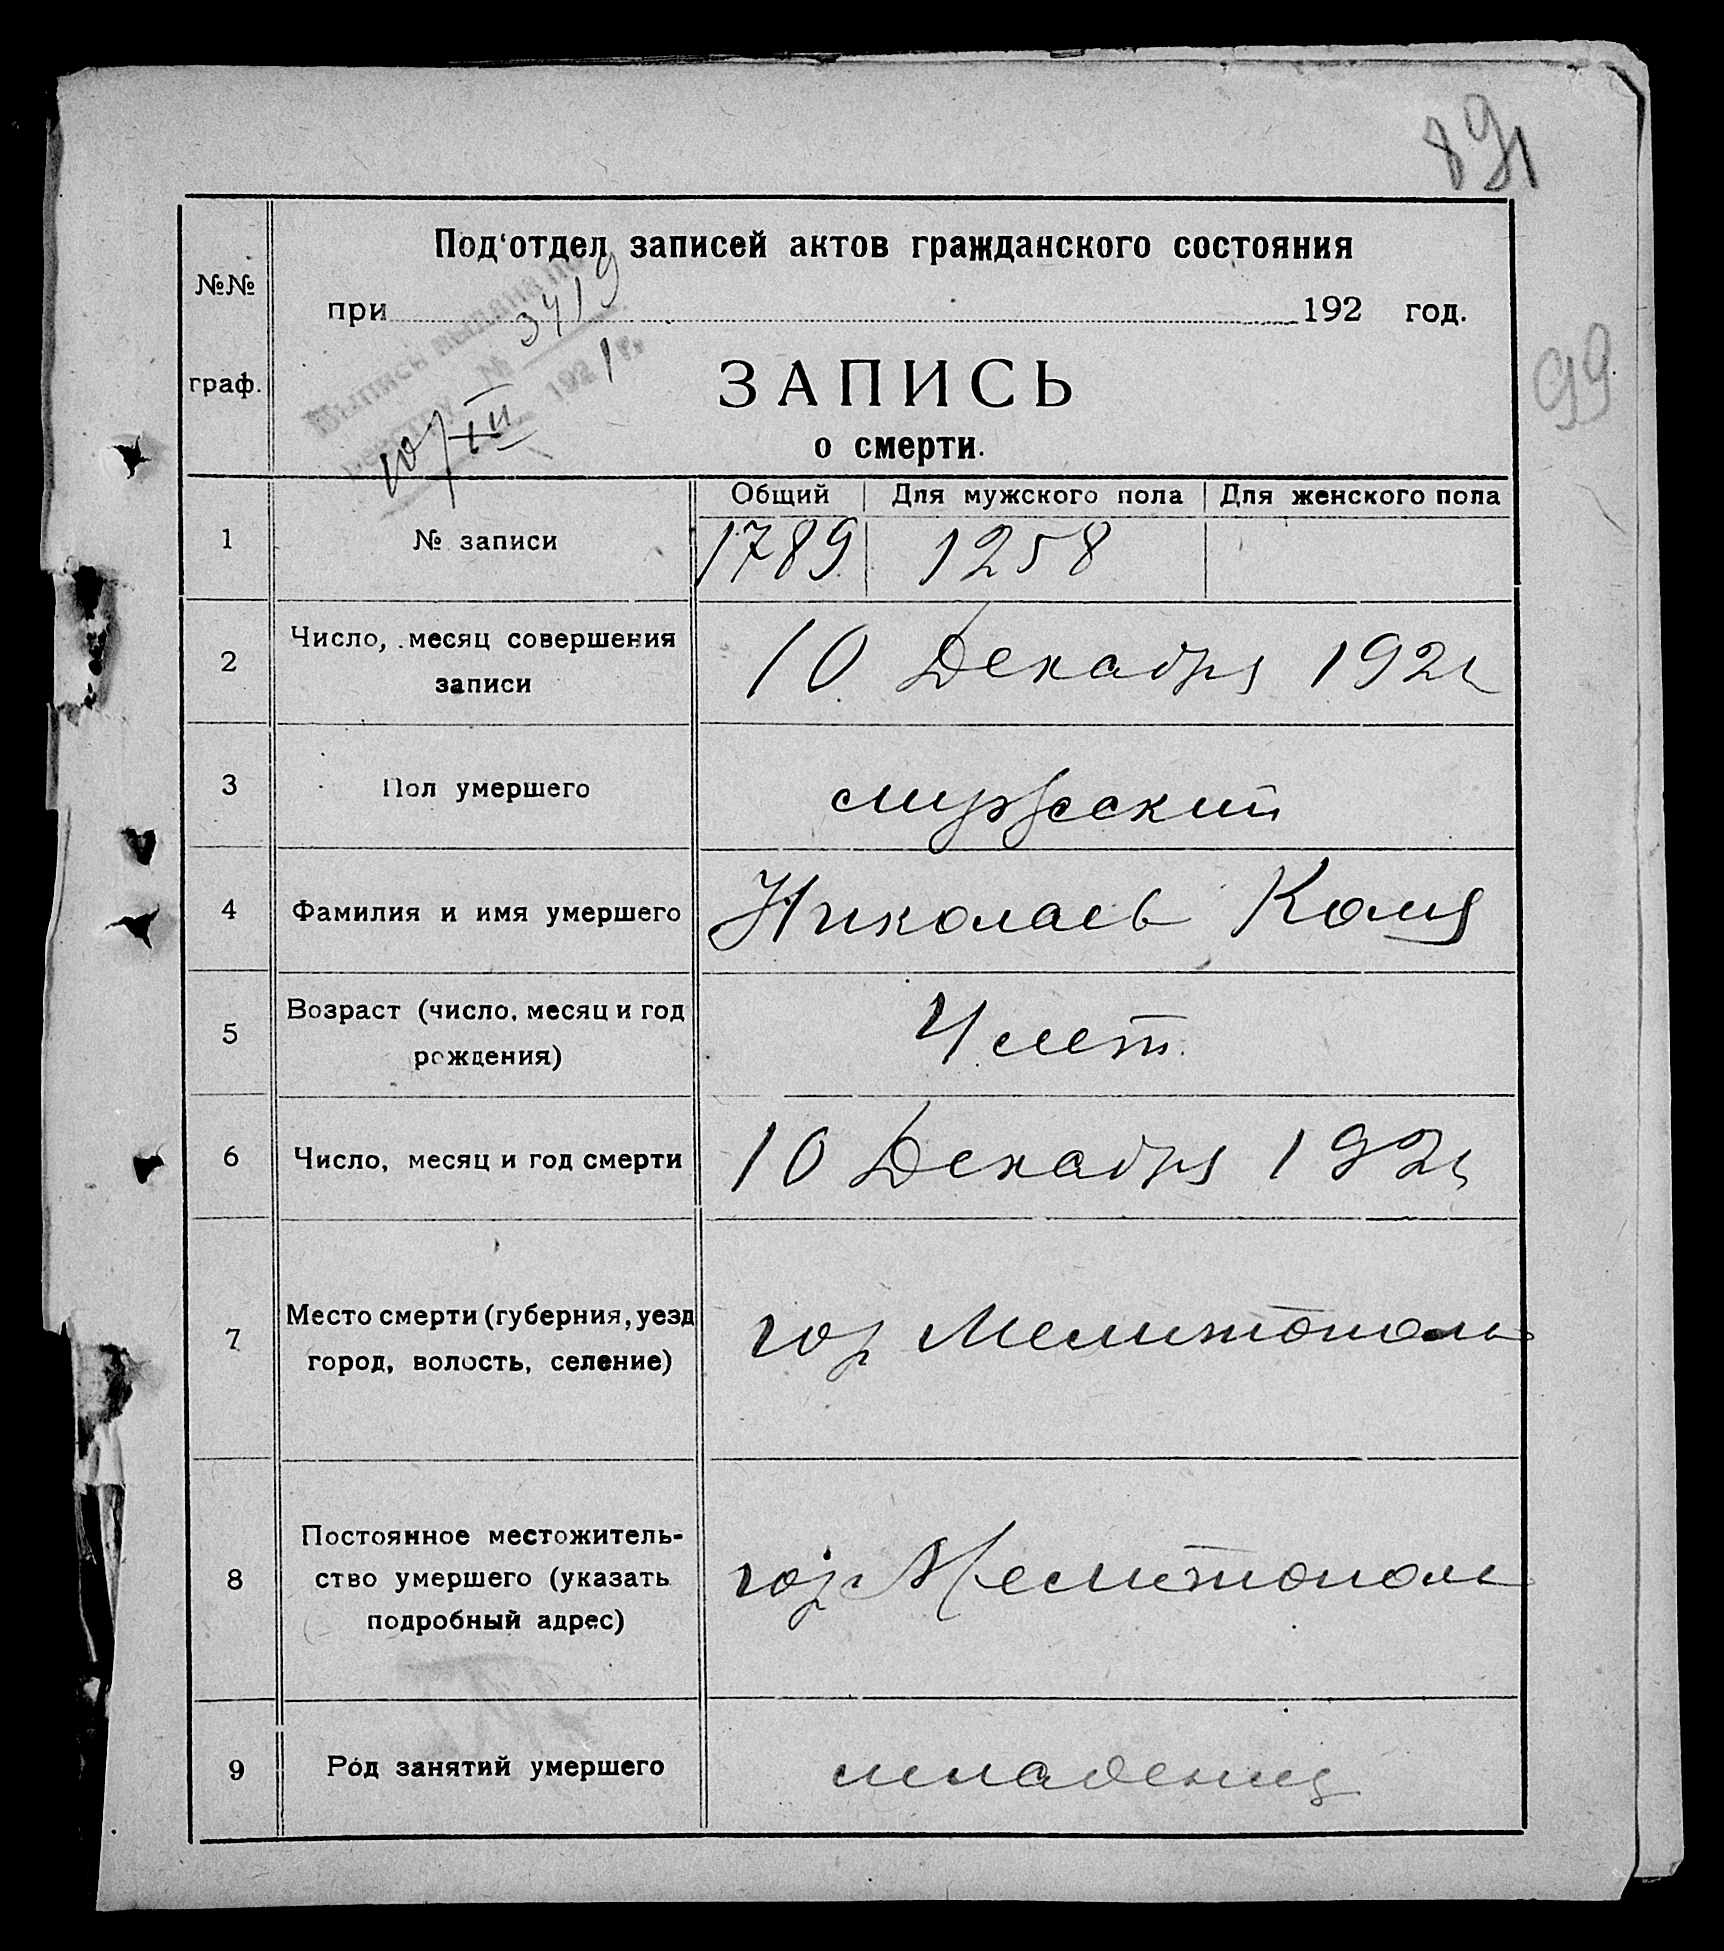 891
99
№№ граф.
Под‘отдел записей актов гражданского состояния
при 192 год.
Выпись выдана по
реестру № 3419
10/XII 1921 г.
ЗАПИСЬ
о смерти.
Общий Для мужского пола Для женского пола
1 № записи 1789 1258
2 Число, месяц совершения
записи
10 Декабря 1921
3 Пол умершего мужский
4 Фамилия и имя умершего Николаев Коля
5 Возраст (число, месяц и год
рождения)
4 лет
6 Число, месяц и год смерти 10 Декабря 1921
7 Место смерти (губерния, уезд
город, волость, селение)
гор Мелитополь
8 Постоянное местожитель-
ство умершего (указать
подробный адрес)
гор Мелитополь
9 Род занятий умершего младенец